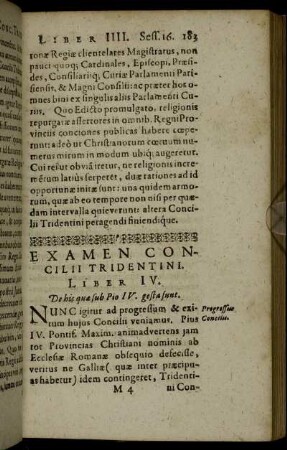 LIBER IIII. Sess. 16. 183
ronæ Regiæ clientelares Magistratus, non
pauci quoq; Cardinales, Episcopi, Præsi-
des, Consiliariiq; Curiæ Parlamenti Pari-
siensis, & Magni Consilii: ac præter hos
omnes bini ex singulis aliis Parlamenti Cu-
riis. Quo Edicto promulgato, religionis
repurgatæ assertores in omnib. Regni Pro-
vinciis conciones publicas habere cœpe-
runt: adeò ut Christianorum cœtuum nu-
merus mirum in modum ubiq; augeretur.
Cui rei ut obviā iretur, ne religionis incre-
mētum latiùs serperet, duæ rationes ad id
opportunæ initæ sunt: una quidem armo-
rum, quæ ab eo tempore non nisi per quæ-
dam intervalla quieverunt: altera Conci-
lii Tridentini peragendi finiendique.
EXAMEN CON-
CILII TRIDENTINI.
LIBER IV.
De his quæ sub Pio IV. gesta sunt.
NUNC igitur ad progressum & exi-
tum hujus Concilii veniamus. Pius
Progressus
Concilii.
IV. Pontif. Maxim. animadvertens jam
tot Provincias Christiani nominis ab
Ecclesiæ Romanæ obsequio defecisse,
veritus ne Galliæ ( quæ inter præcipu-
as habetur) idem contingeret, Tridenti-
M 4
ni Con-